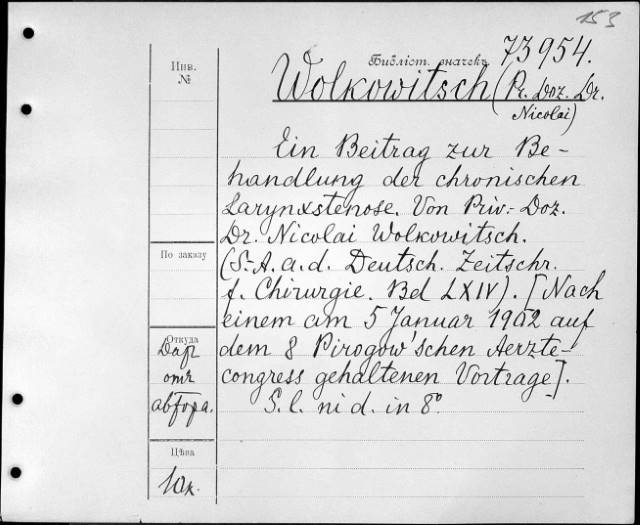 153
Библіот. значекъ 73954.
Инв.
№
Wolkowitsch (Pr. Doz. Dr.
Nicolai)
Ein Beitrag zur Be-
handlung der chronischen
Larynxstenose. Von Priv.- Doz.
Dr. Nicolai Wolkowitsch.
По заказу
(S.-A. a. d. Deutsch. Zeitschr.
f. Chirurgie. Bd LXIV). [Nach
einem am 5 Januar 1902 auf
Откуда
dem 8 Pirogow'schen Aerzte-
Даръ
отъ
автора.
congress gehaltenen Vortrage].
S. l. ni d. in 8°
Цѣна
10к.